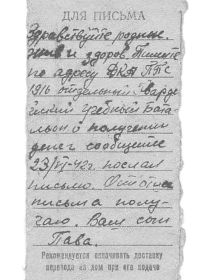 ДЛЯ ПИСЬМА
Здравствуйте родные.
Жив и здоров. Пишите
по адресу ДКА ППС
1916 отдельный Гвардей
ский Учебный Бата-
льон о получении
денег сообщение
23/VI-42г. послал
письмо. От
письма полу-
чаю. Ваш сын
Пава.
Рекомендуется оплачивать доставку
перевода на дом при его подаче